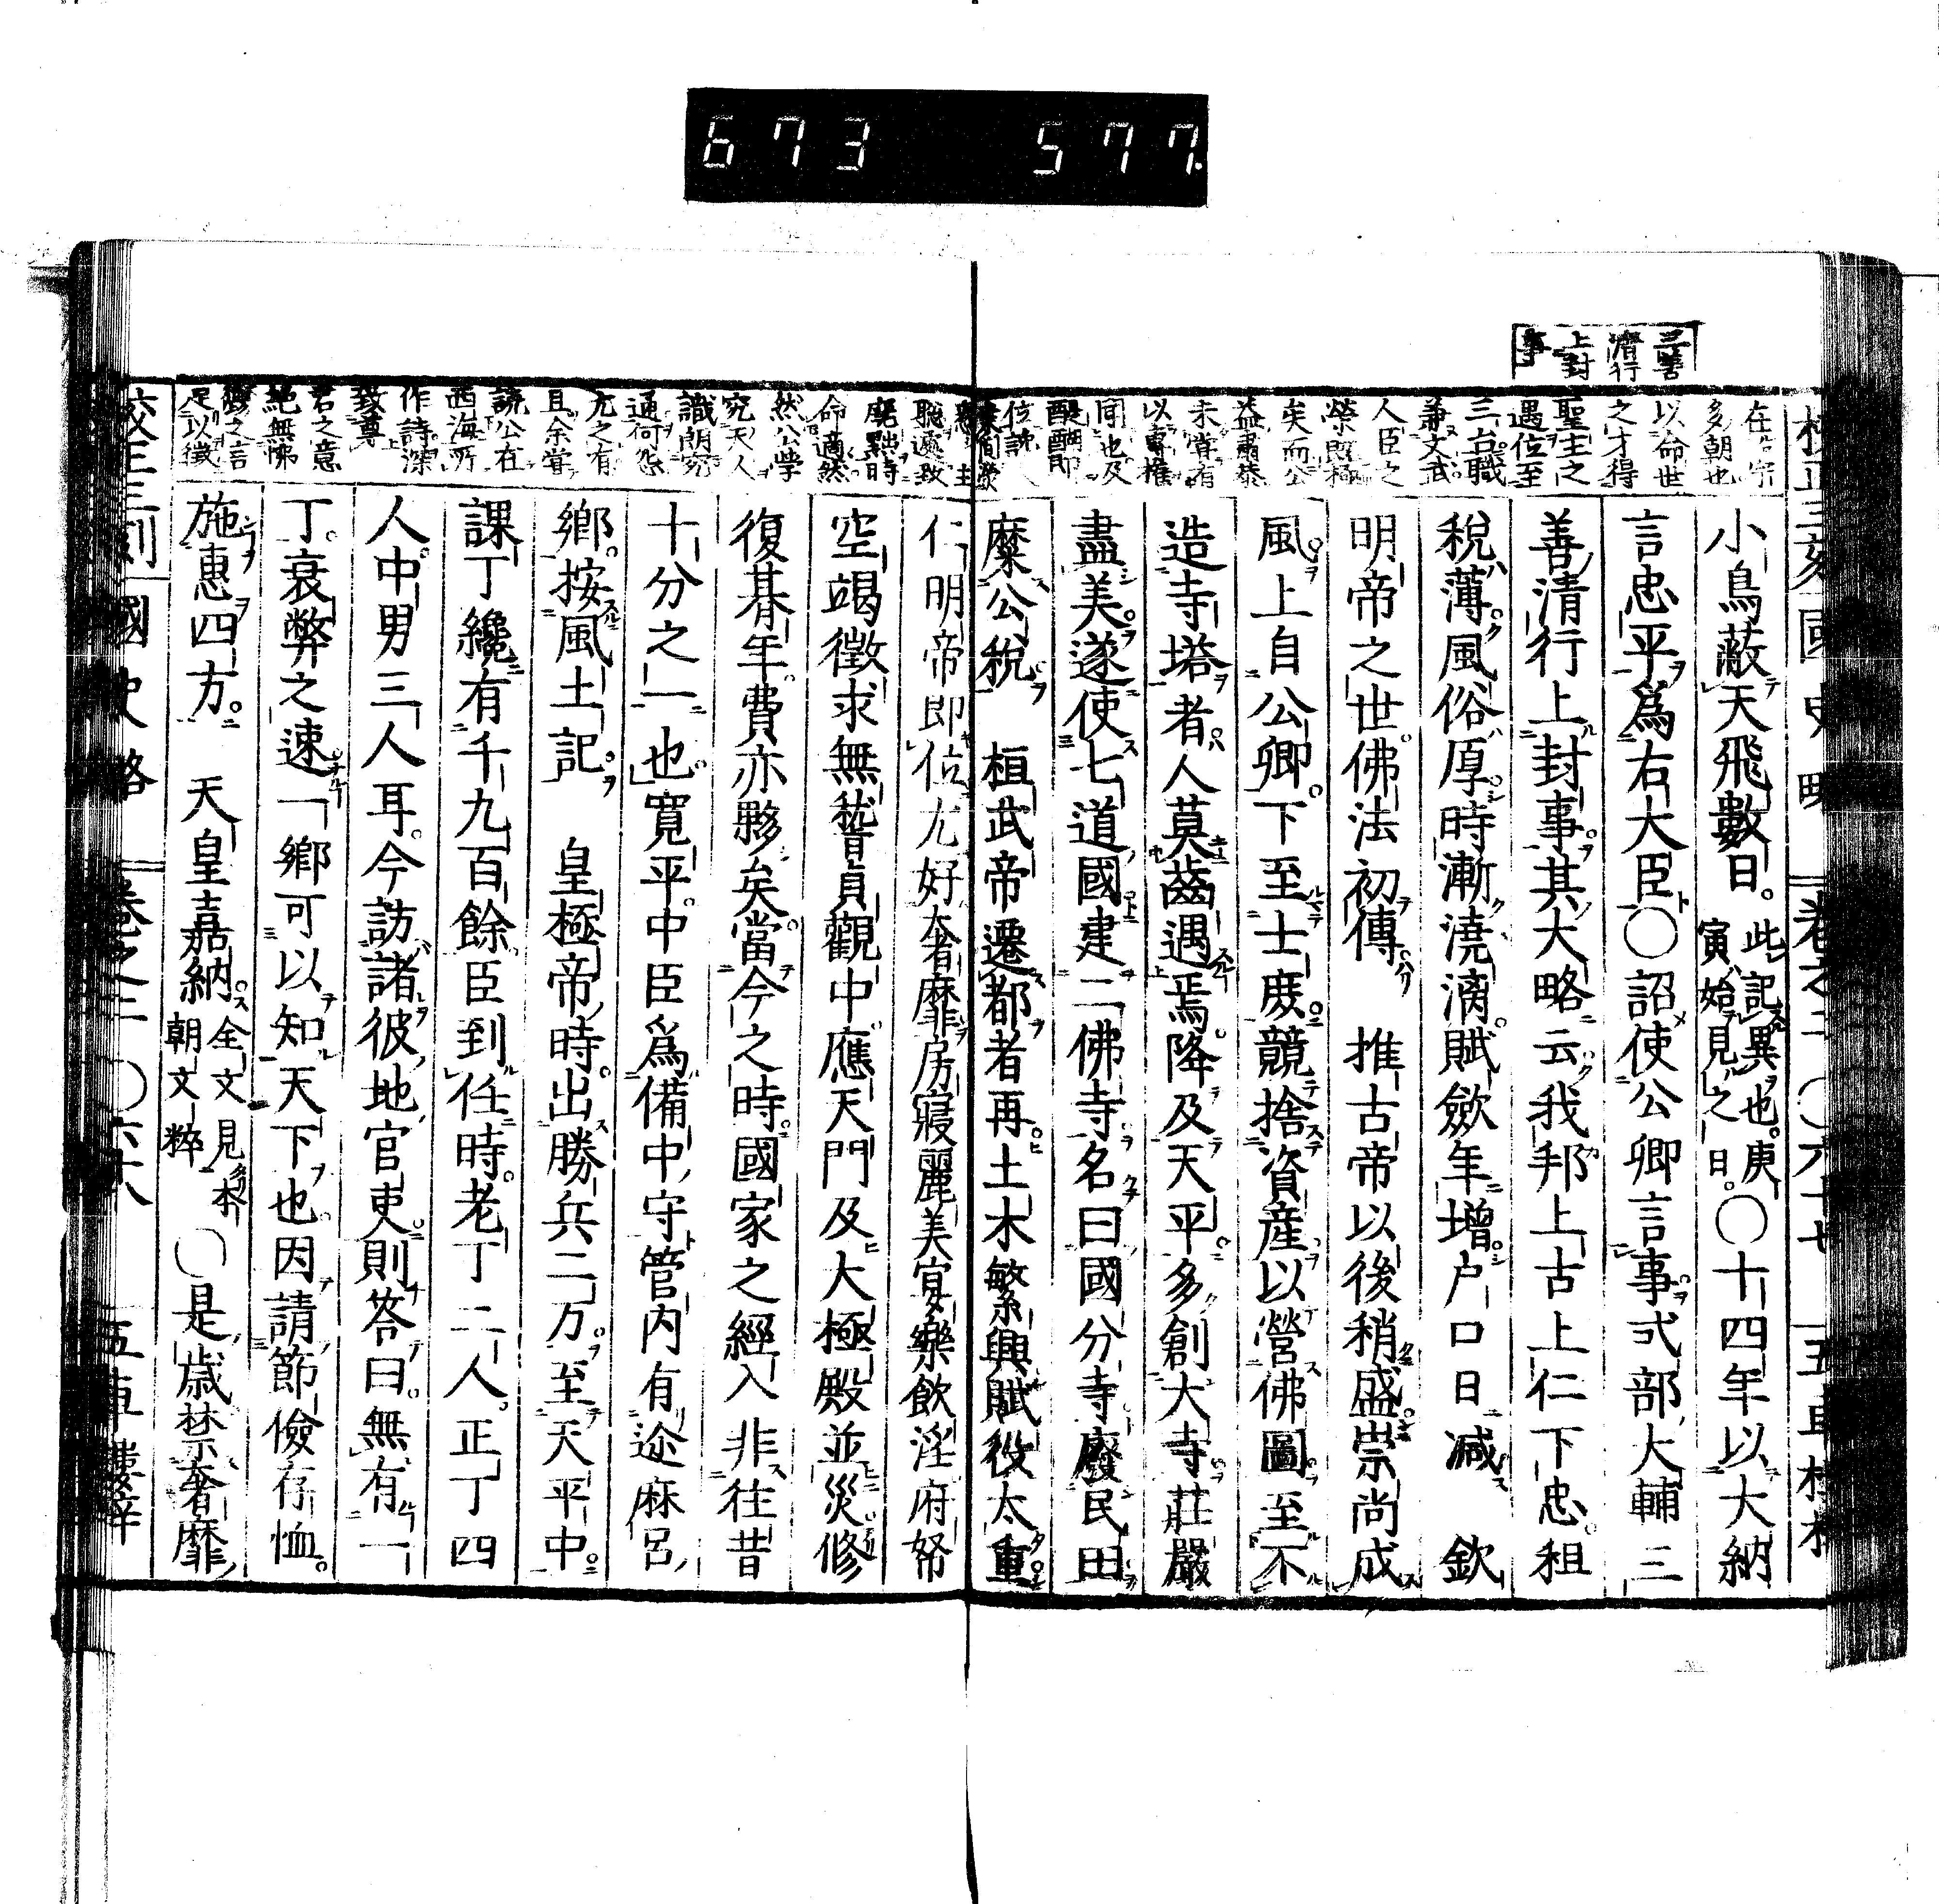 673 577
三善
清行
上封
事
校正三刻國史略 卷之二 〇六十七 五車樓梓
多朝也
以命世
之才得
聖主之
遇位至
三台職
兼文武
人臣之
榮既極
矣而公
益肅恭
未嘗有
以專權
同也及
醍醐即
小鳥蔽天飛數日。此記異也。庚寅始見之日。〇十四年以大納
言忠平爲右大臣〇詔使公卿言事式部大輔三
善清行上封事其大略云我邦上古上仁下忠租
稅薄風俗厚時漸澆漓賦斂年增户口日减 欽
明帝之世佛法初傳 推古帝以後稍盛崇尚成
風上自公卿。下至士庻競捨資産以營佛圖至不
造寺塔者人莫齒遇焉降及天平多創大寺莊嚴
盡美遂使七道國建二佛寺名曰國分寺廢民田
糜公稅 桓武帝遷都者再土木繁興賦役太重
聰遽致
命適然
然公學
究天人
識朗究
通何怨
尤之有
且余嘗
讀公在
西海所
作詩深
致尊
君之意
絶無怫
欝之言
足以徵
仁明帝即位尤好奢靡房寢麗美宴樂飲淫府帑
空竭徵求無藝貞觀中應天門及大極殿並災修
復朞年費亦夥矣當今之時國家之經入非往昔
十分之一也寛平中臣爲備中守管内有迩麻呂
鄉。按風土記 皇極帝時出勝兵二万至天平中
課丁纔有千九百餘臣到任時老丁二人正丁四
人中男三人耳。今訪諸彼地官吏則答曰。無有一
丁。衰弊之速一鄉可以知天下也因請節儉存恤。
施惠四方。 天皇嘉納。全文見本朝文粹 〇是歳禁奢靡
校正三刻國史略 卷之二 〇六十八 五車樓梓